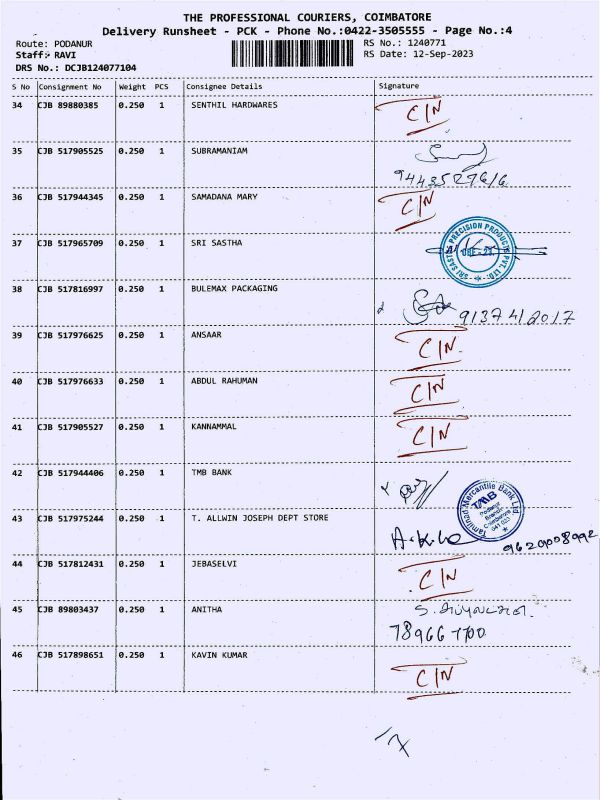 THE PROFESSIONAL COURIERS, COIMBATORE
Delivery Runsheet - PCK - Phone No.:0422-3505555 - Page No.:4
Route: PODANUR RS No.: 1240771
Staff: RAVI RS Date: 12-Sep-2023
DRS No.: DCJB124077104
S No Consignment No Weight PCS Consignee Details Signature
34 CJB 89880385 0.250 1 SENTHIL HARDWARES C/N
35 CJB 517905525 0.250 1 SUBRAMANIAM
9443527616
36 CJB 517944345 0.250 1 SAMADANA MARY C/N
37 CJB 517965709 0.250 1 SRI SASTHA
SRI SASTHA PRECISION PRODUCTS PVT. LTD.
CBE - 23.
38 CJB 517816997 0.250 1 BULEMAX PACKAGING
9137412017
39 CJB 517976625 0.250 1 ANSAAR C/N
40 CJB 517976633 0.250 1 ABDUL RAHUMAN C/N
41 CJB 517905527 0.250 1 KANNAMMAL C/N
42 CJB 517944406 0.250 1 TMB BANK
Tamilnad Mercantile Bank Ltd.
TMB
Podanur
Branch
Coimbatore
641 023
43 CJB 517975244 0.250 1 T. ALLWIN JOSEPH DEPT STORE
9629008992
44 CJB 517812431 0.250 1 JEBASELVI C/N
45 CJB 89803437 0.250 1 ANITHA
78966 7700
46 CJB 517898651 0.250 1 KAVIN KUMAR C/N